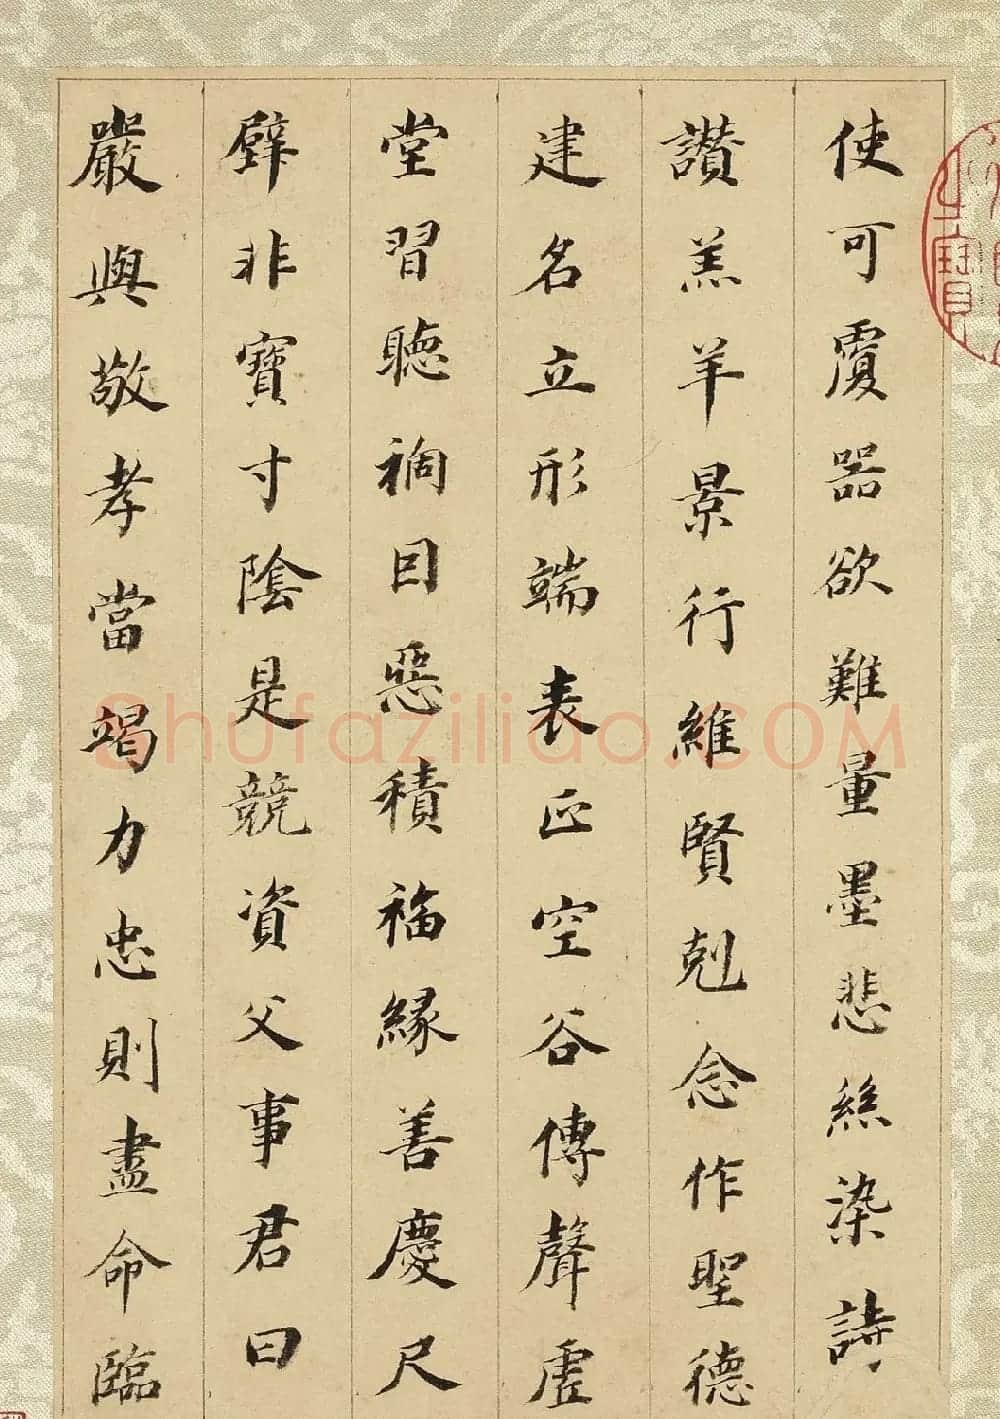 使可覆器欲難量墨悲絲染詩
讚羔羊景行維賢剋念作聖德
建名立形端表正空谷傳聲虛
堂習聽禍因惡積福緣善慶尺
璧非寶寸陰是競資父事君曰
嚴與敬孝當竭力忠則盡命臨
Shufaziliao.COM